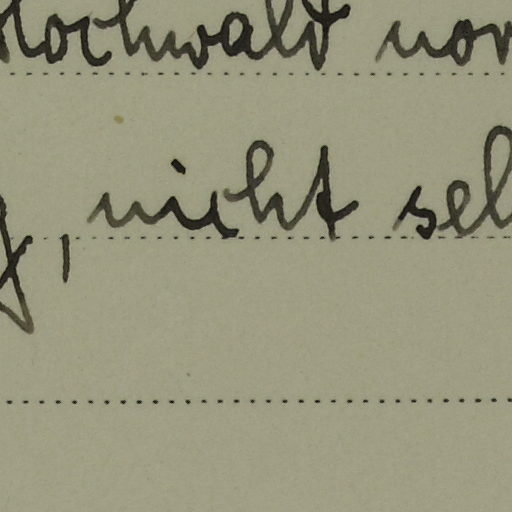 Hochwald nor
g, nicht seh